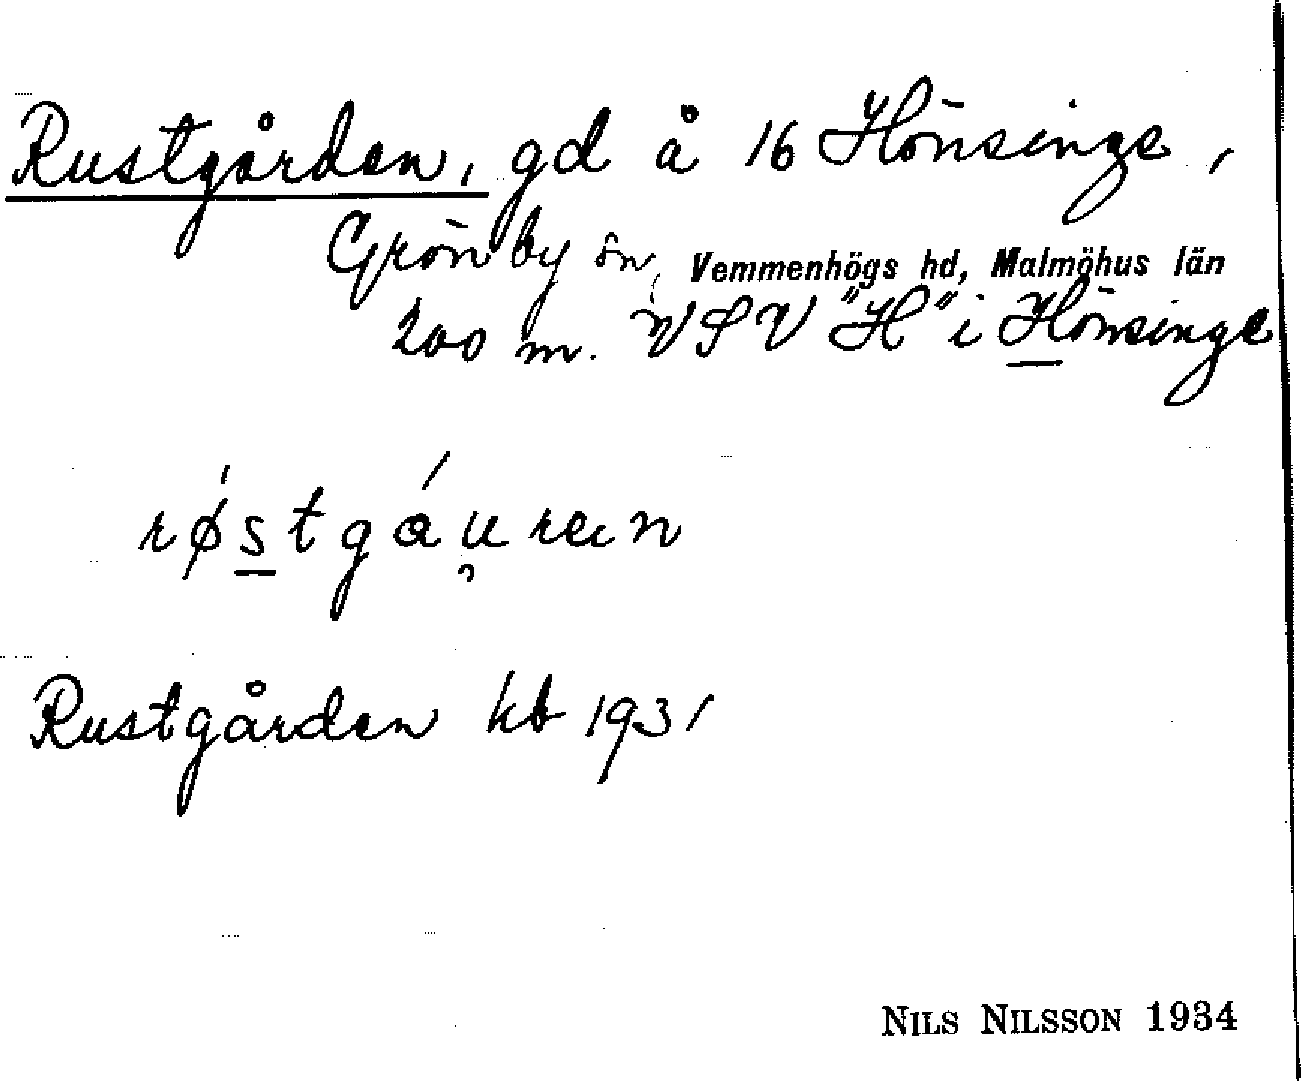 Rustgården, gd å 16 Hönsinge,
Grönby sn, Vemmenhögs hd, Malmöhus län
200 m. VSV "H" i Hönsinge
røstgáu̯ræn
Rustgården kb 1931
NILS NILSSON 1934